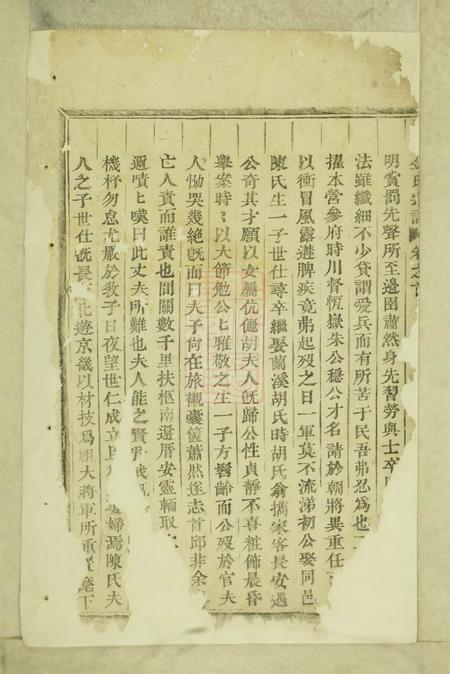 金氏宗譜 卷之首
明賞罰先聲所至邊圉肅然身先習勞與士卒
法雖纖細不少貸謂愛兵而有所苦于民吾弗忍爲也
擢本營參府時川督恆嶽朱公穩公才名請於朝將異重任
以衝冒風露遘脾疾竟弗起歿之日一軍莫不流涕初公娶同邑
陳氏生一子世仕尋卒繼娶蘭溪胡氏時胡氏翁攜家客長安遇
公奇其才願以女屬伉儷胡夫人旣歸公性貞靜不喜粧飾晨昏
舉案時〻以大節勉公〻雅敬之生一子方髫齡而公歿於官夫
人慟哭幾絶旣而曰夫子何在旅櫬囊篋蕭然遂志首邱非余
亡人責而誰責也間關數千里扶柩南還厝安靈輀取
邇嘖〻嘆曰此丈夫所難也夫人能之賢哉
機杼勿怠尤嚴於敎子日夜望世仁成立 婦焉陳氏夫
人之子世仕旣長 北遊京畿以材技爲祖大將軍所重 麾下